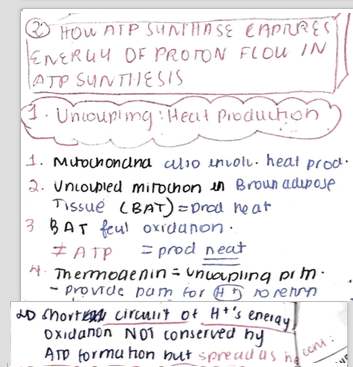 ② HOW ATP SYNTHASE CAPTURES
ENERGY OF PROTON FLOW IN
ATP SYNTHESIS
1. Uncoupling: Heat Production
1. Mitochondria also involv. heat prod.
2. Uncoupled mitochon in Brown adipose
Tissue (BAT) = prod heat
3 BAT fuel oxidation.
≠ ATP = prod heat
4. Thermogenin = uncoupling prtn.
- provide path for H+ to return
short circuit of H+'s energy
oxidation NOT conserved by
ATP formation but spread as